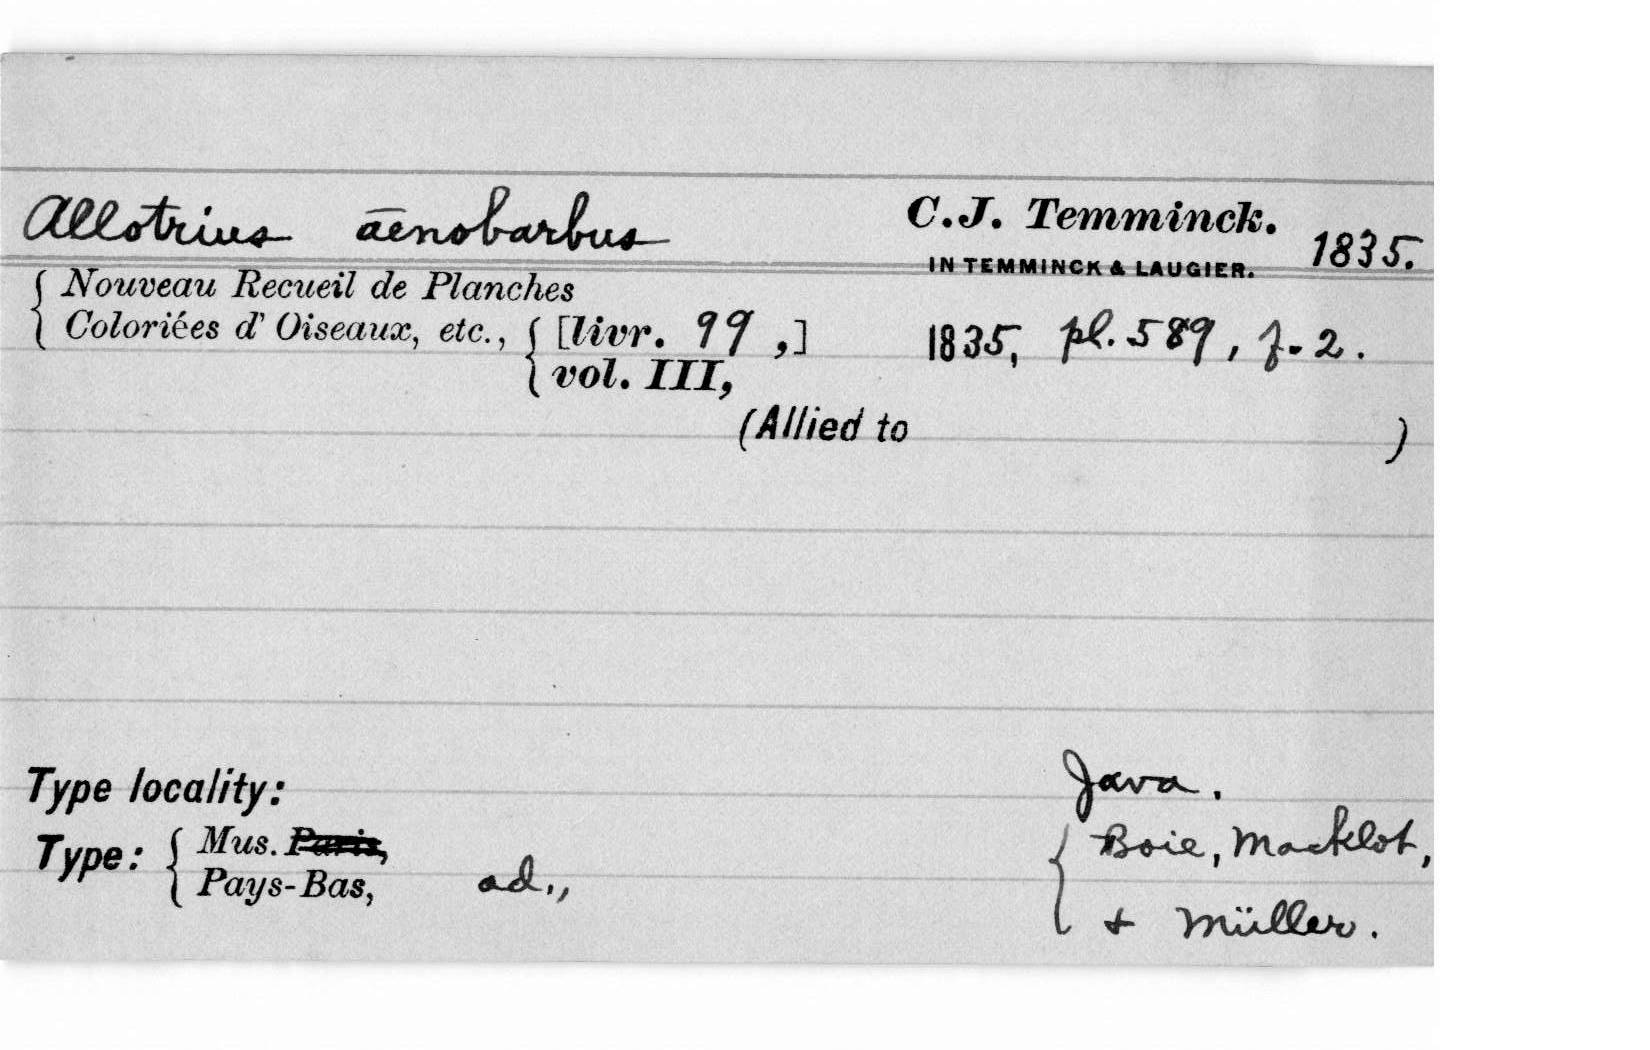 Allotrius āenobarbus C.J. Temminck. 1835.
IN TEMMINCK & LAUGIER.
Nouveau Recueil de Planches
Coloriées d' Oiseaux, etc., [livr. 99 ,] 1835, pl. 589, f. 2.
vol. III,
(Allied to )
Type locality: Java.
Type: Mus. Paris, Boie, Macklot,
Pays-Bas, ad., & Müller.